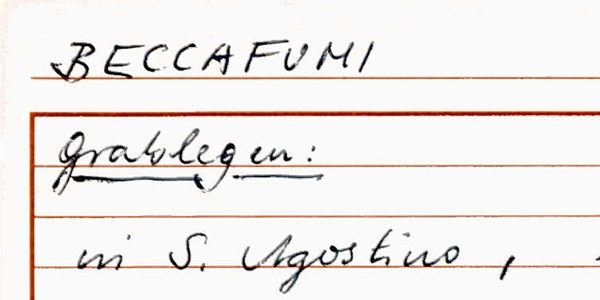 BECCAFUMI
Grablegen:
in S. Agostino,